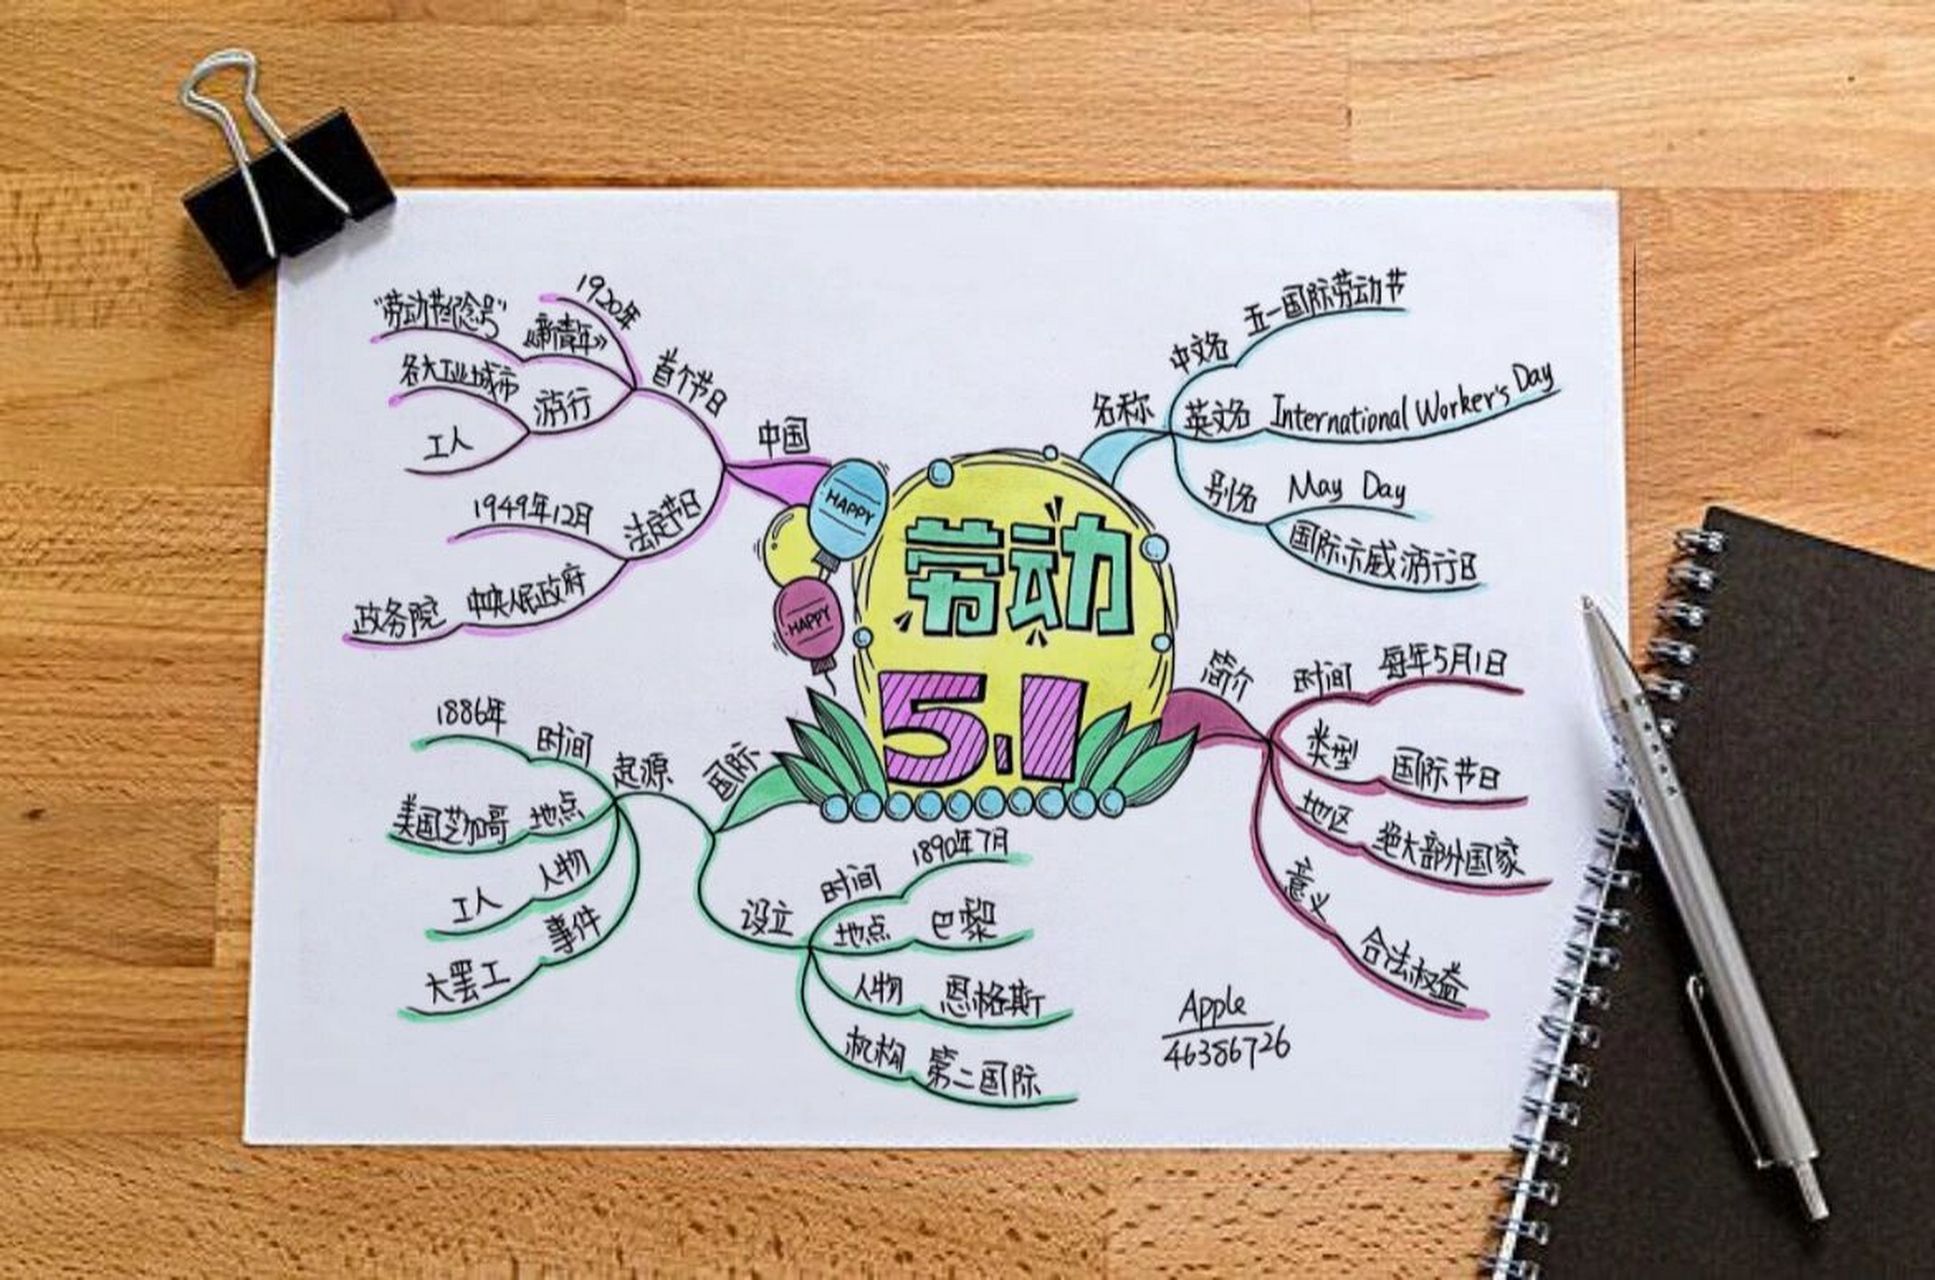 劳动
5.1
HAPPY
HAPPY
名称
中文名
五一国际劳动节
英文名
International Worker's Day
别名
May Day
国际示威游行日
简介
时间
每年5月1日
类型
国际节日
地区
绝大部分国家
意义
合法权益
国际
起源
时间
1886年
地点
美国芝加哥
人物
工人
事件
大罢工
设立
时间
1890年7月
地点
巴黎
人物
恩格斯
机构
第二国际
中国
首个节日
1920年
《新青年》
"劳动节纪念号"
游行
各大工业城市
工人
法定节日
1949年12月
中央人民政府
政务院
Apple
46386726